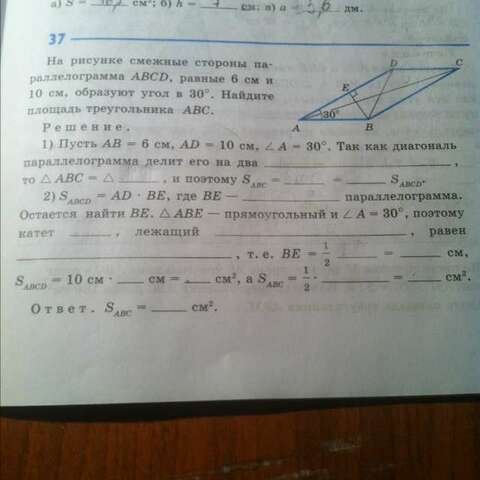 а) S = см²; б) h = 7 см; в) a = 2,6 дм.
37
На рисунке смежные стороны па-
раллелограмма ABCD, равные 6 см и
10 см, образуют угол в 30°. Найдите
площадь треугольника ABC.
A B C D E 30°
Решение.
1) Пусть AB = 6 см, AD = 10 см, ∠A = 30°. Так как диагональ
параллелограмма делит его на два ________ ,
то △ABC = △ ____ , и поэтому S_ABC = ____ = ____ S_ABCD.
2) S_ABCD = AD · BE, где BE — ________ параллелограмма.
Остается найти BE. △ABE — прямоугольный и ∠A = 30°, поэтому
катет ____ , лежащий ________ , равен
________ , т. е. BE = 1/2 ____ = ____ см,
S_ABCD = 10 см · ___ см = ___ см², а S_ABC = 1/2 · ____ = ___ см².
Ответ. S_ABC = ____ см².